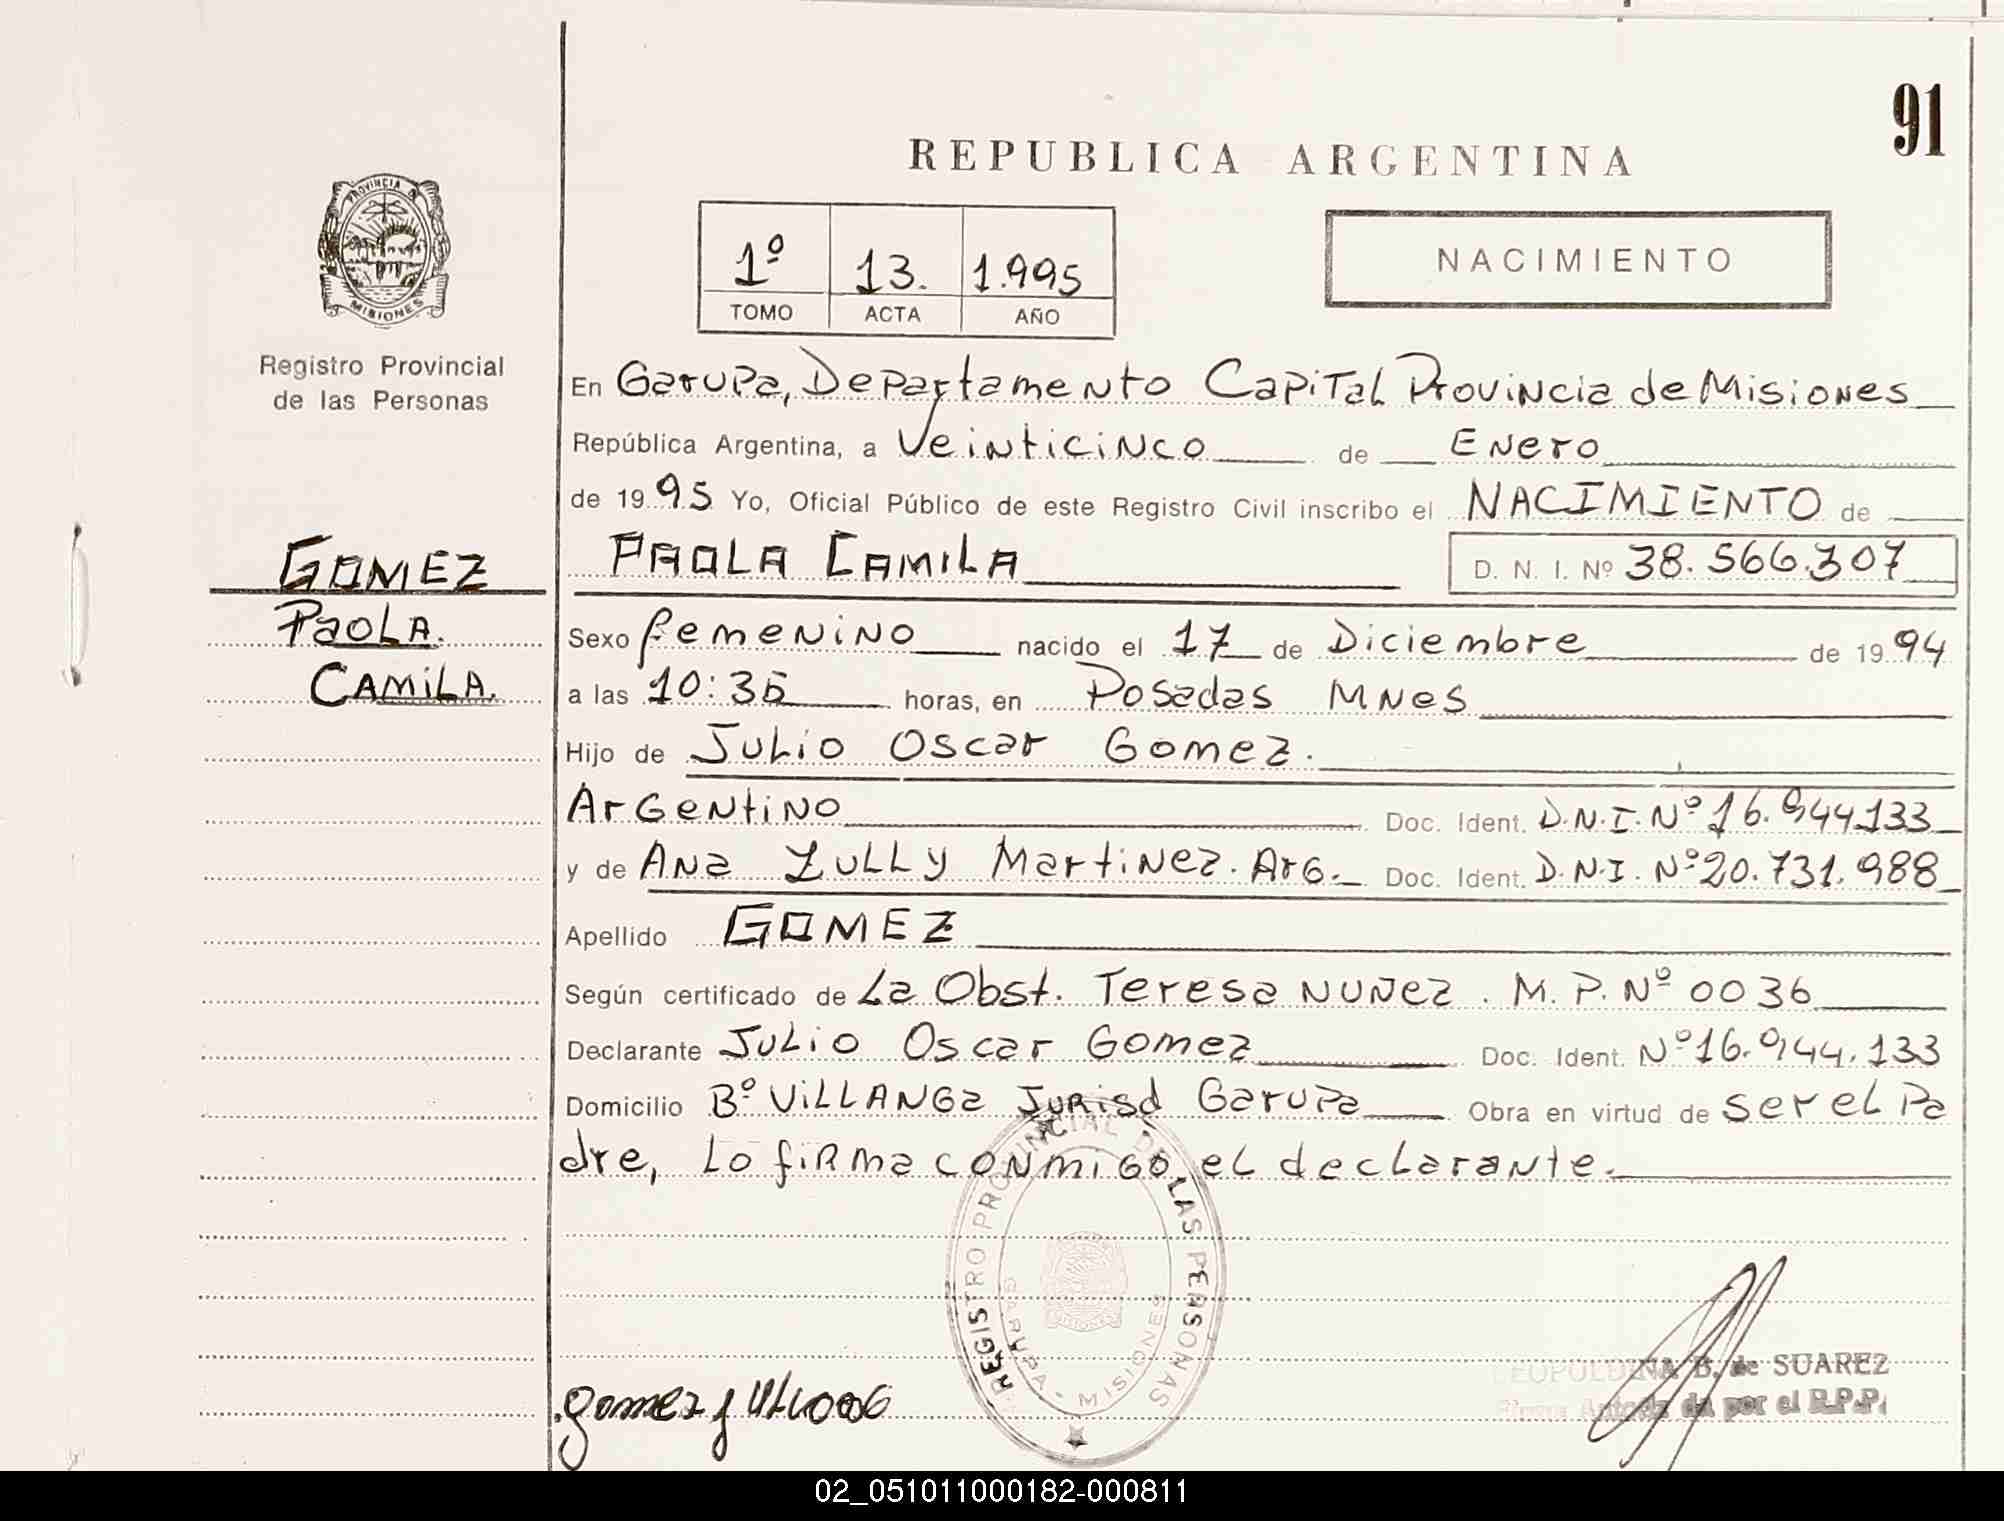 91
REPUBLICA ARGENTINA
PROVINCIA DE
MISIONES
Registro Provincial
de las Personas
1º 13. 1.995
TOMO ACTA AÑO
NACIMIENTO
En Garupa, Departamento Capital Provincia de Misiones
República Argentina, a Veinticinco de Enero
de 1995 Yo, Oficial Público de este Registro Civil inscribo el NACIMIENTO de
GOMEZ
PAOLA.
CAMILA.
PAOLA CAMILA D. N. I. Nº 38.566.307
Sexo femenino nacido el 17 de Diciembre de 1994
a las 10:35 horas, en Posadas Mnes
Hijo de Julio Oscar Gomez.
Argentino Doc. Ident. D.N.I. Nº 16.944133
y de Ana Zully Martinez. Arg. Doc. Ident. D.N.I. Nº 20.731.988
Apellido GOMEZ
Según certificado de La Obst. Teresa Nuñez. M.P. Nº 0036
Declarante Julio Oscar Gomez Doc. Ident. Nº 16.944.133
Domicilio Bº Villanga Jurisd Garupa Obra en virtud de ser el Pa
dre, Lo firma conmigo el declarante.
REGISTRO PROVINCIAL DE LAS PERSONAS
GARUPA - MISIONES
MISIONES
LEOPOLDINA B. de SUAREZ
da por el R.P.P.
gomez
02_051011000182-000811